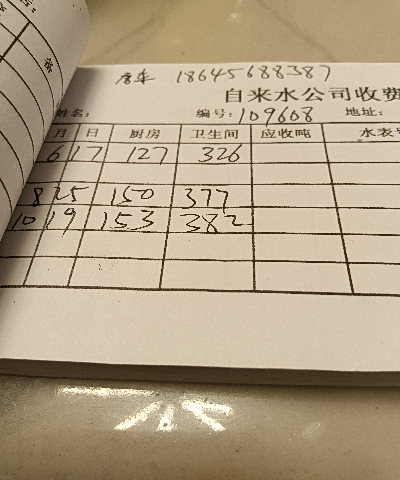 18645688387
自来水公司收费
姓名: 编号:109608 地址:
月 日 厨房 卫生间 应收吨 水表
6 17 127 326
8 25 150 377
10 19 153 382